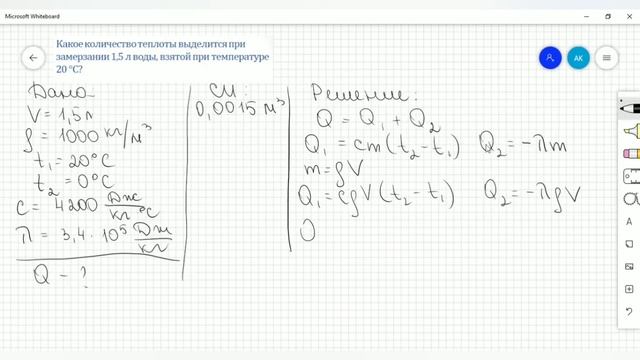 Microsoft Whiteboard
Какое количество теплоты выделится при
замерзании 1,5 л воды, взятой при температуре
20 °С?
AK
Дано
V = 1,5 л
ρ = 1000 кг/м³
t₁ = 20°C
t₂ = 0°C
c = 4200 Дж/кг °C
λ = 3,4 · 10⁵ Дж/кг
Q – ?
СИ:
0,0015 м³
Решение:
Q = Q₁ + Q₂
Q₁ = cm (t₂ – t₁) Q₂ = – λm
m = ρV
Q₁ = cρV (t₂ – t₁) Q₂ = – λρV